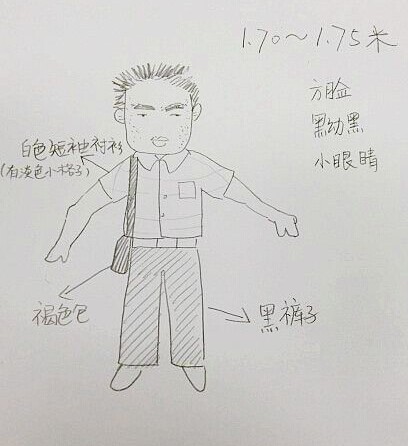 1.70～1.75米
方脸
黑幼黑
小眼睛
白色短袖衬衫
(有淡色小格子)
褐色包
黑裤子